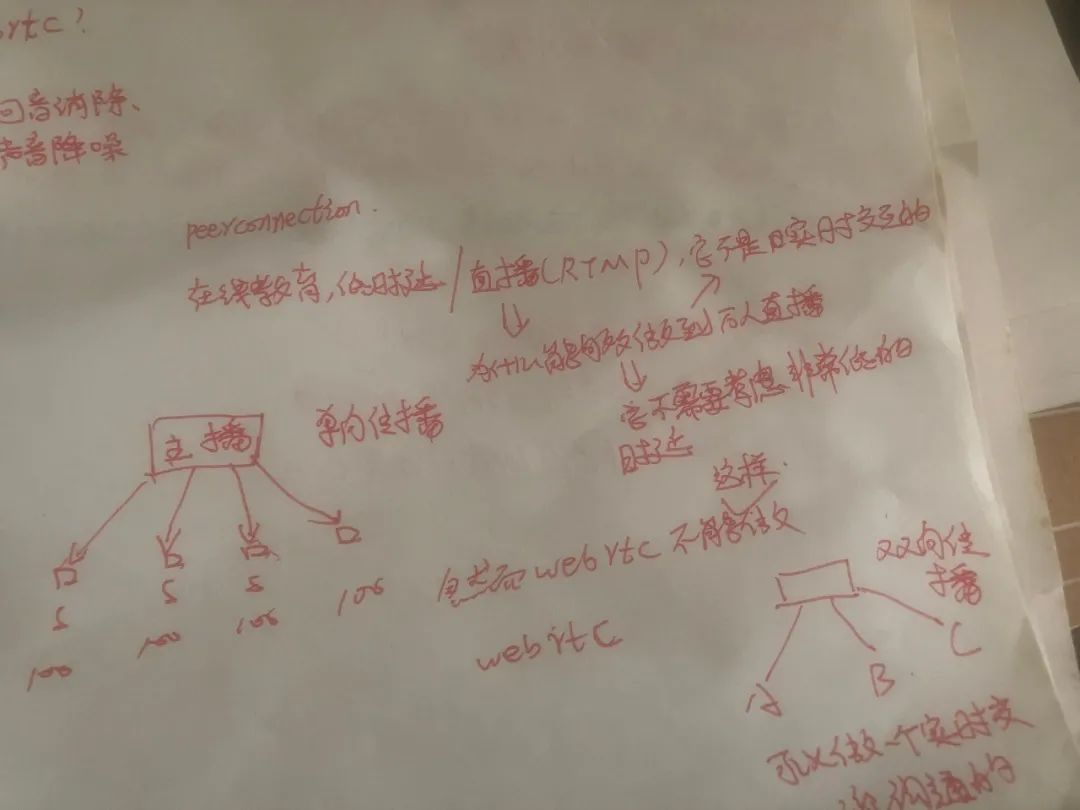 rtc?
回音消除、
声音降噪
peerconnection.
在线教育,低时延/直播(RTMP),它不是实时交互的
为什么能够做到万人直播
它不需要考虑非常低的
时延
主播
单向传播
这样
然而webrtc不能够做
双向传播
100
100
100
100
webrtc
A
B
C
可以做一个实时交
沟通的